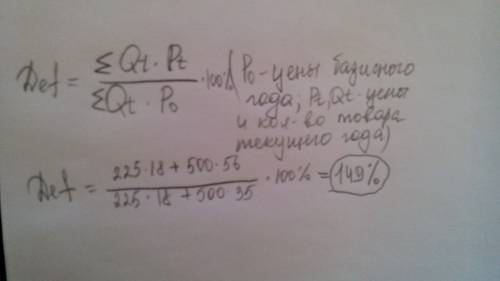 Def = ΣQt · Pt / ΣQt · P₀ · 100% (P₀ - цены базисного
года; Pt, Qt - цены
и кол-во товара
текущего года)
Def = 225·18 + 500·56 / 225·18 + 500·35 · 100% = 149%